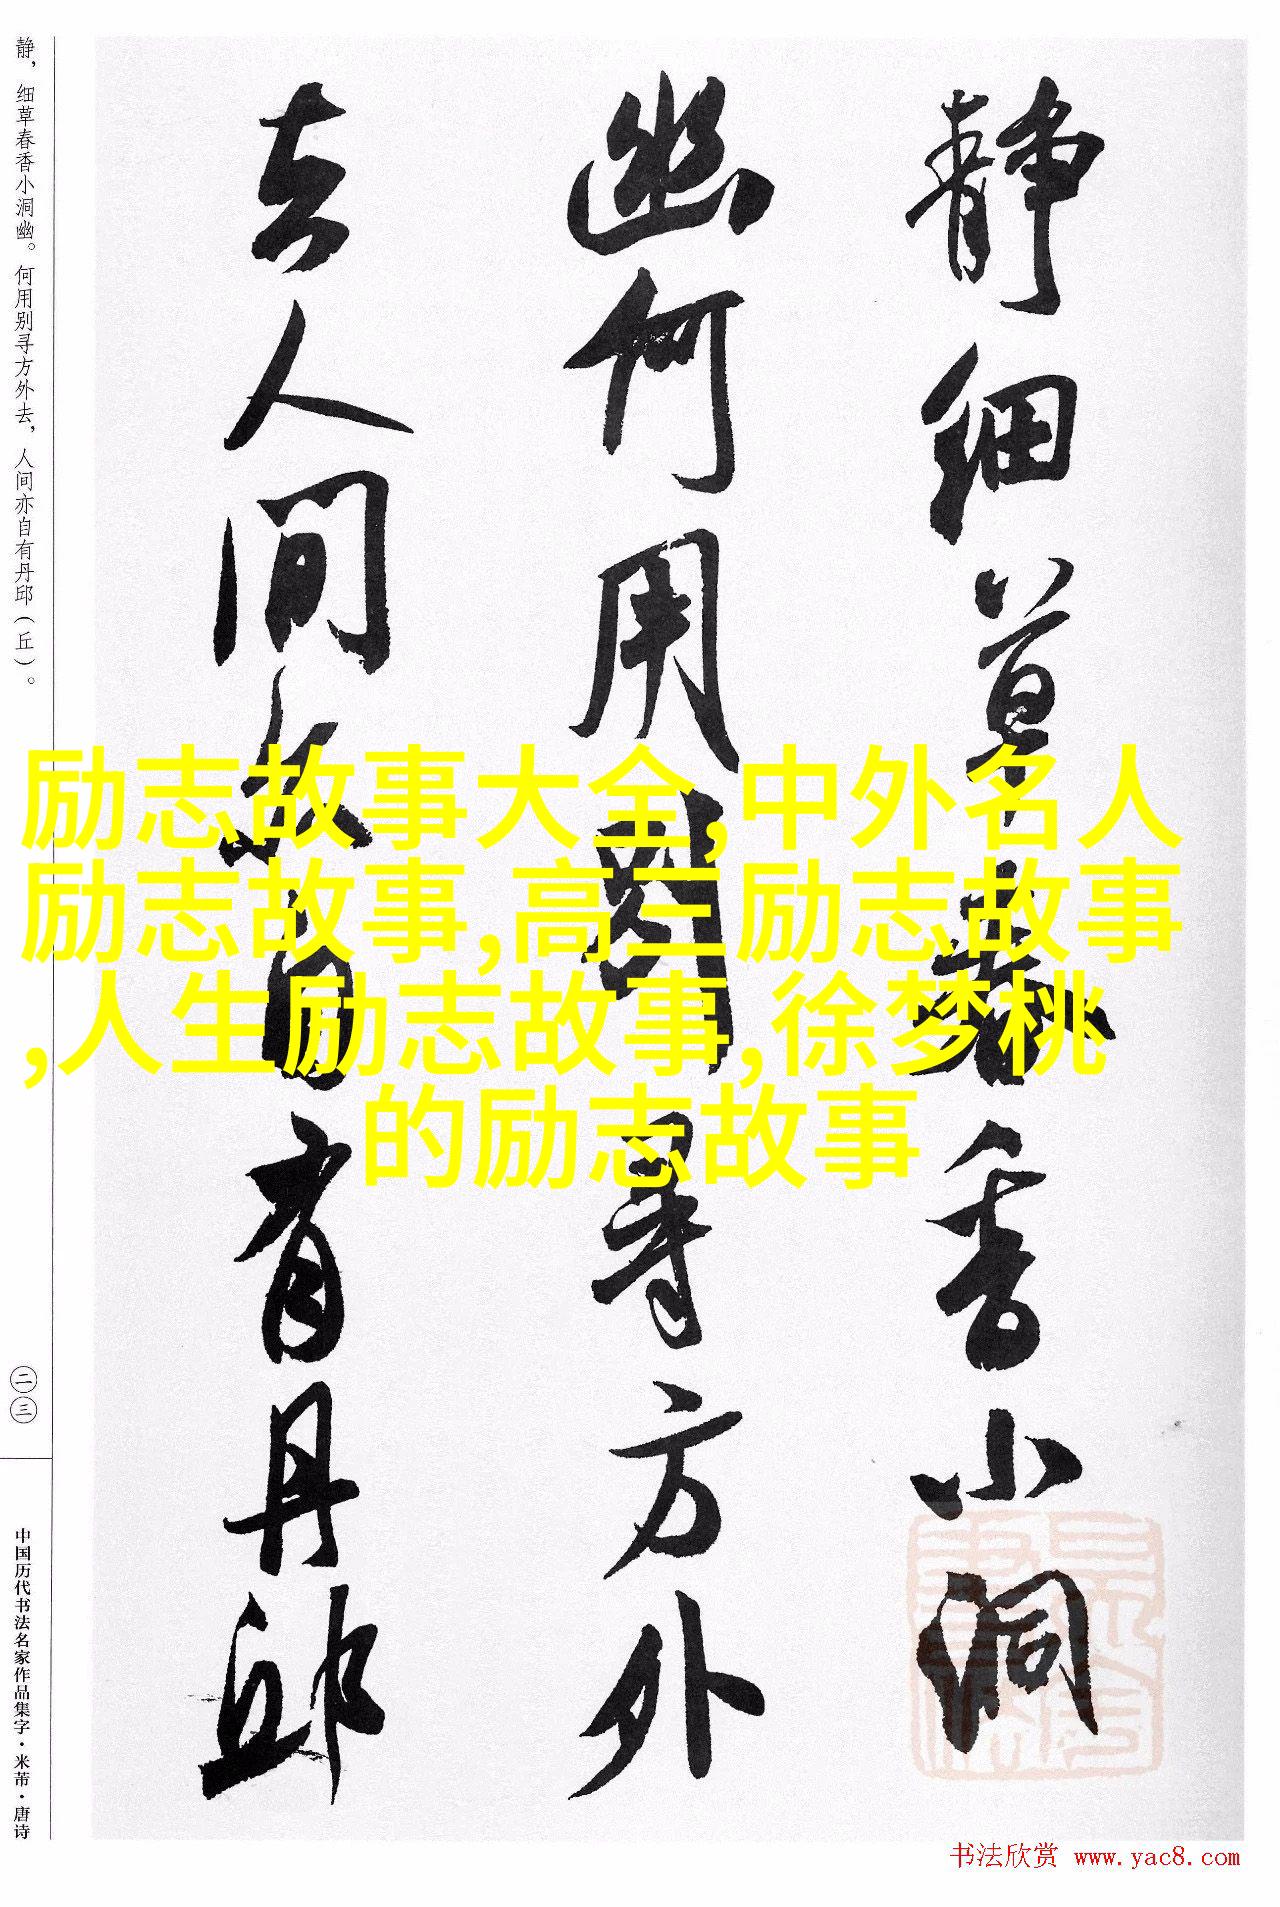 静细草春香小洞
幽何用别寻方外
去人间亦自有丹邱
静，细草春香小洞幽。何用别寻方外去，人间亦自有丹邱（丘）。
二三
中国历代书法名家作品集字·米芾·唐诗
励志故事大全,中外名人
励志故事,高三励志故事
,人生励志故事,徐梦桃
的励志故事
书法欣赏 www.yac8.com